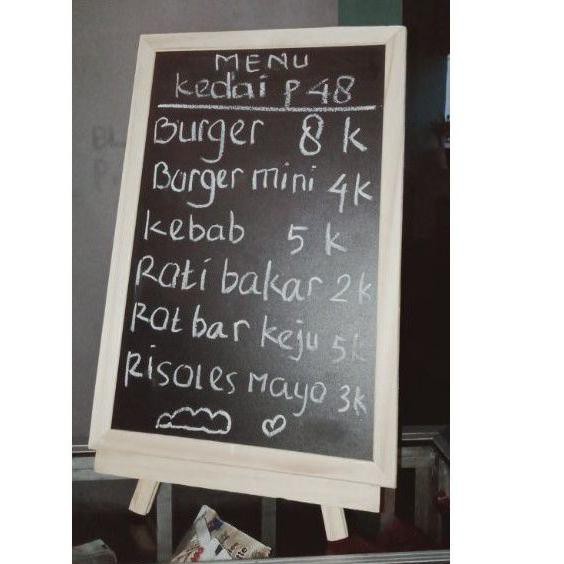 MENU
Kedai P48
Burger 8k
Burger mini 4k
kebab 5k
Roti bakar 2k
Rotbar keju 5k
Risoles Mayo 3k